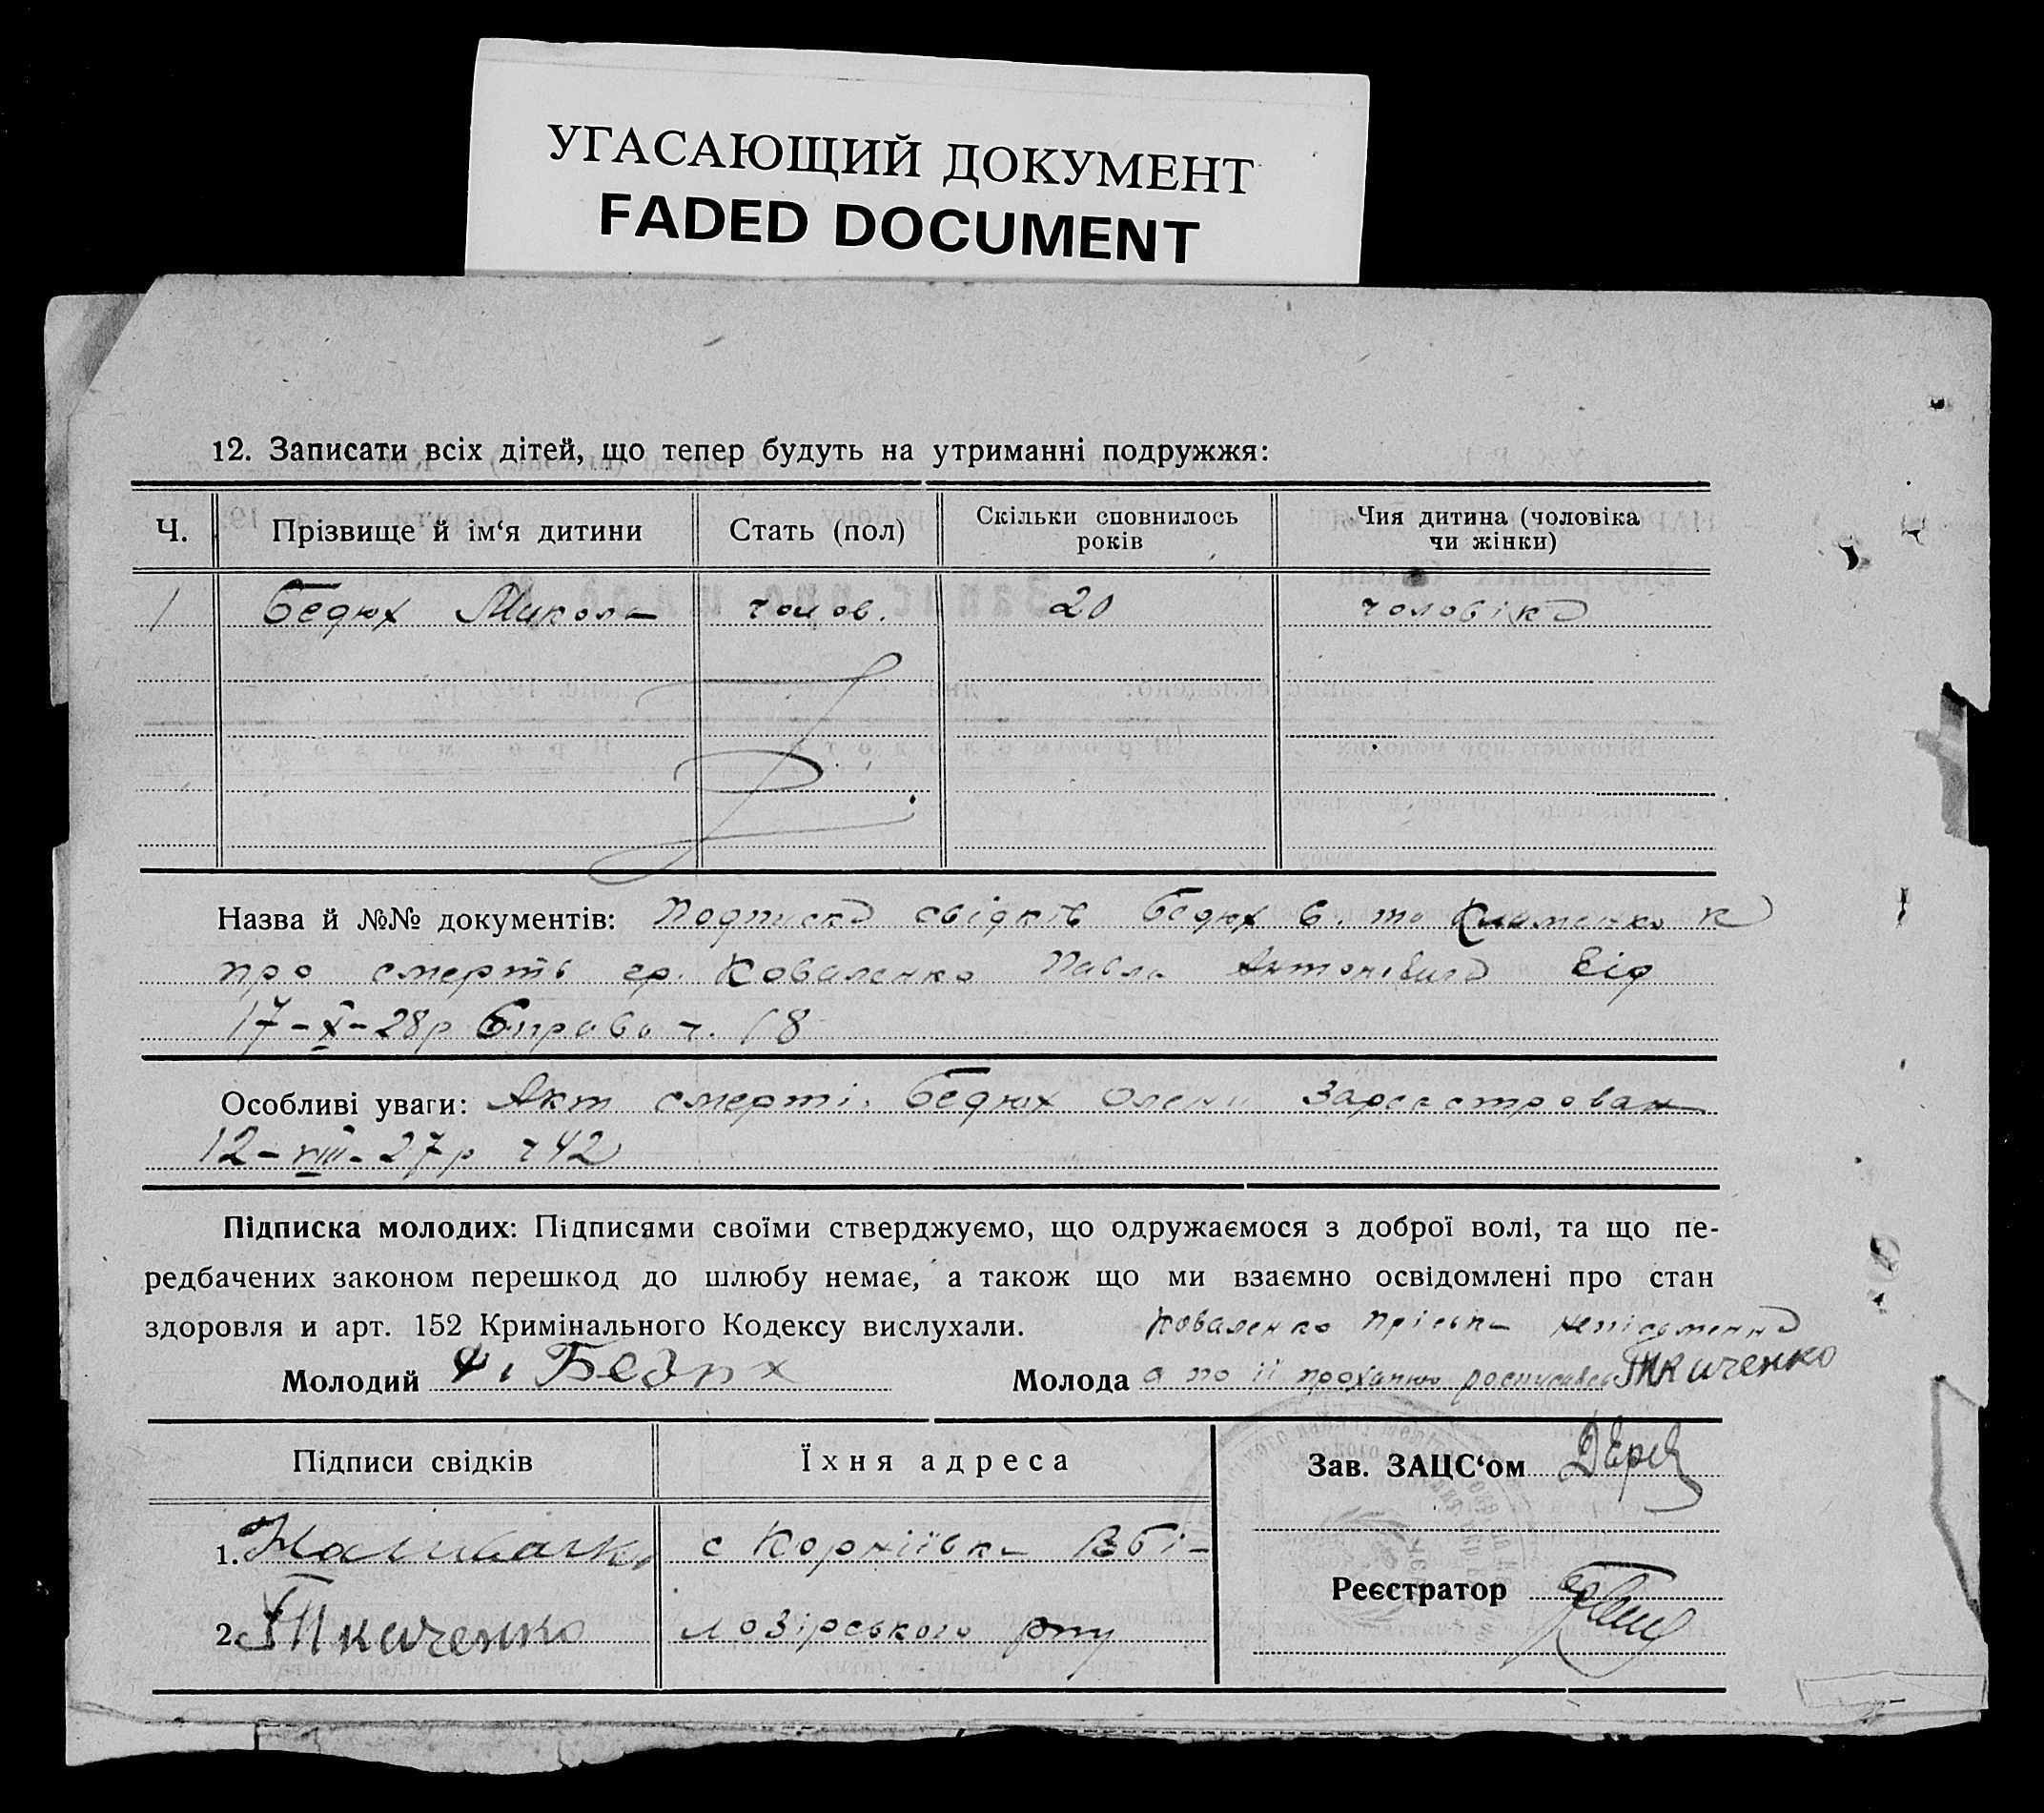 УГАСАЮЩИЙ ДОКУМЕНТ
FADED DOCUMENT
12. Записати всіх дітей, що тепер будуть на утриманні подружжя:
Ч. Прізвище й ім‘я дитини Стать (пол) Скільки сповнилось років Чия дитина (чоловіка чи жінки)
1 Бедюх Микола чолов. 20 чоловіка
Назва й №№ документів: Подписка свідків Бедюх В. та Клименко К
про смерть гр. Коваленко Павла Антоновича від
17-X-28р Справа ч. 18
Особливі уваги: Акт смерті Бедюх Олени зареєстрован
12-VIII-27р ч 42
Підписка молодих: Підписями своїми стверджуємо, що одружаємося з доброї волі, та що пе-
редбачених законом перешкод до шлюбу немає, а також що ми взаємно освідомлені про стан
здоровля и арт. 152 Кримінального Кодексу вислухали. Коваленко Пріська неписьменна
Молодий Бедюх Молода а по її проханню росписався Ткаченко
Підписи свідків Їхня адреса Зав. ЗАЦС‘ом
1. с Корніївка Вбі-
Реєстратор
2. Ткаченко лозірського рну